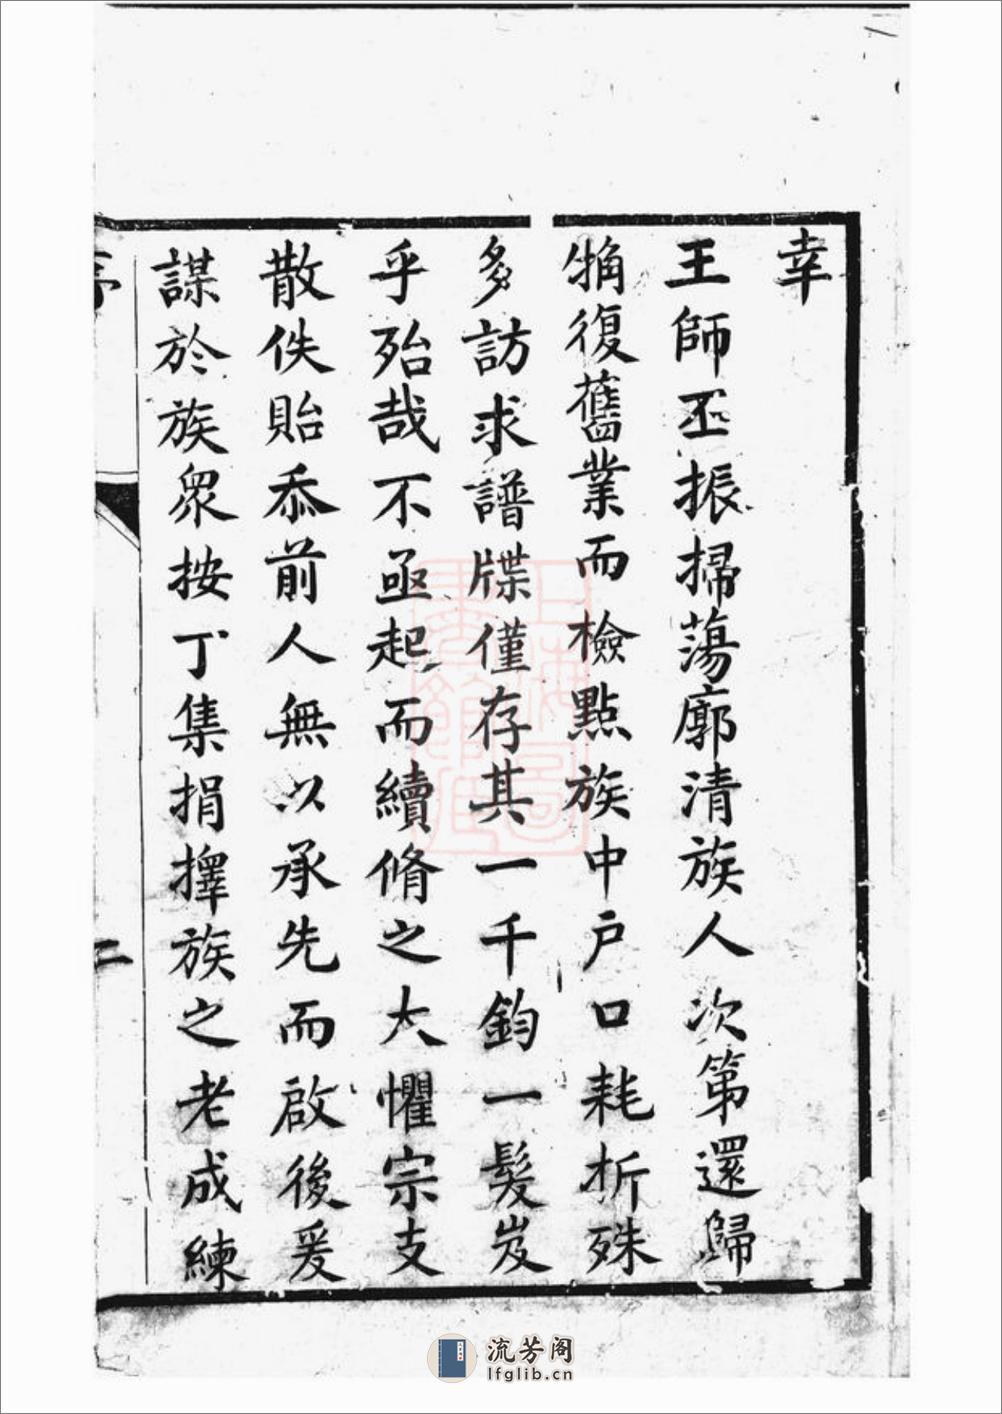 幸
王師丕振掃蕩廓清族人次第還歸
觕復舊業而檢點族中戶口耗折殊
多訪求譜牒僅存其一千鈞一髮岌
乎殆哉不亟起而續脩之大懼宗支
散佚貽忝前人無以承先而啟後爰
謀於族眾按丁集捐擇族之老成練
序
二
流芳阁
lfglib.cn